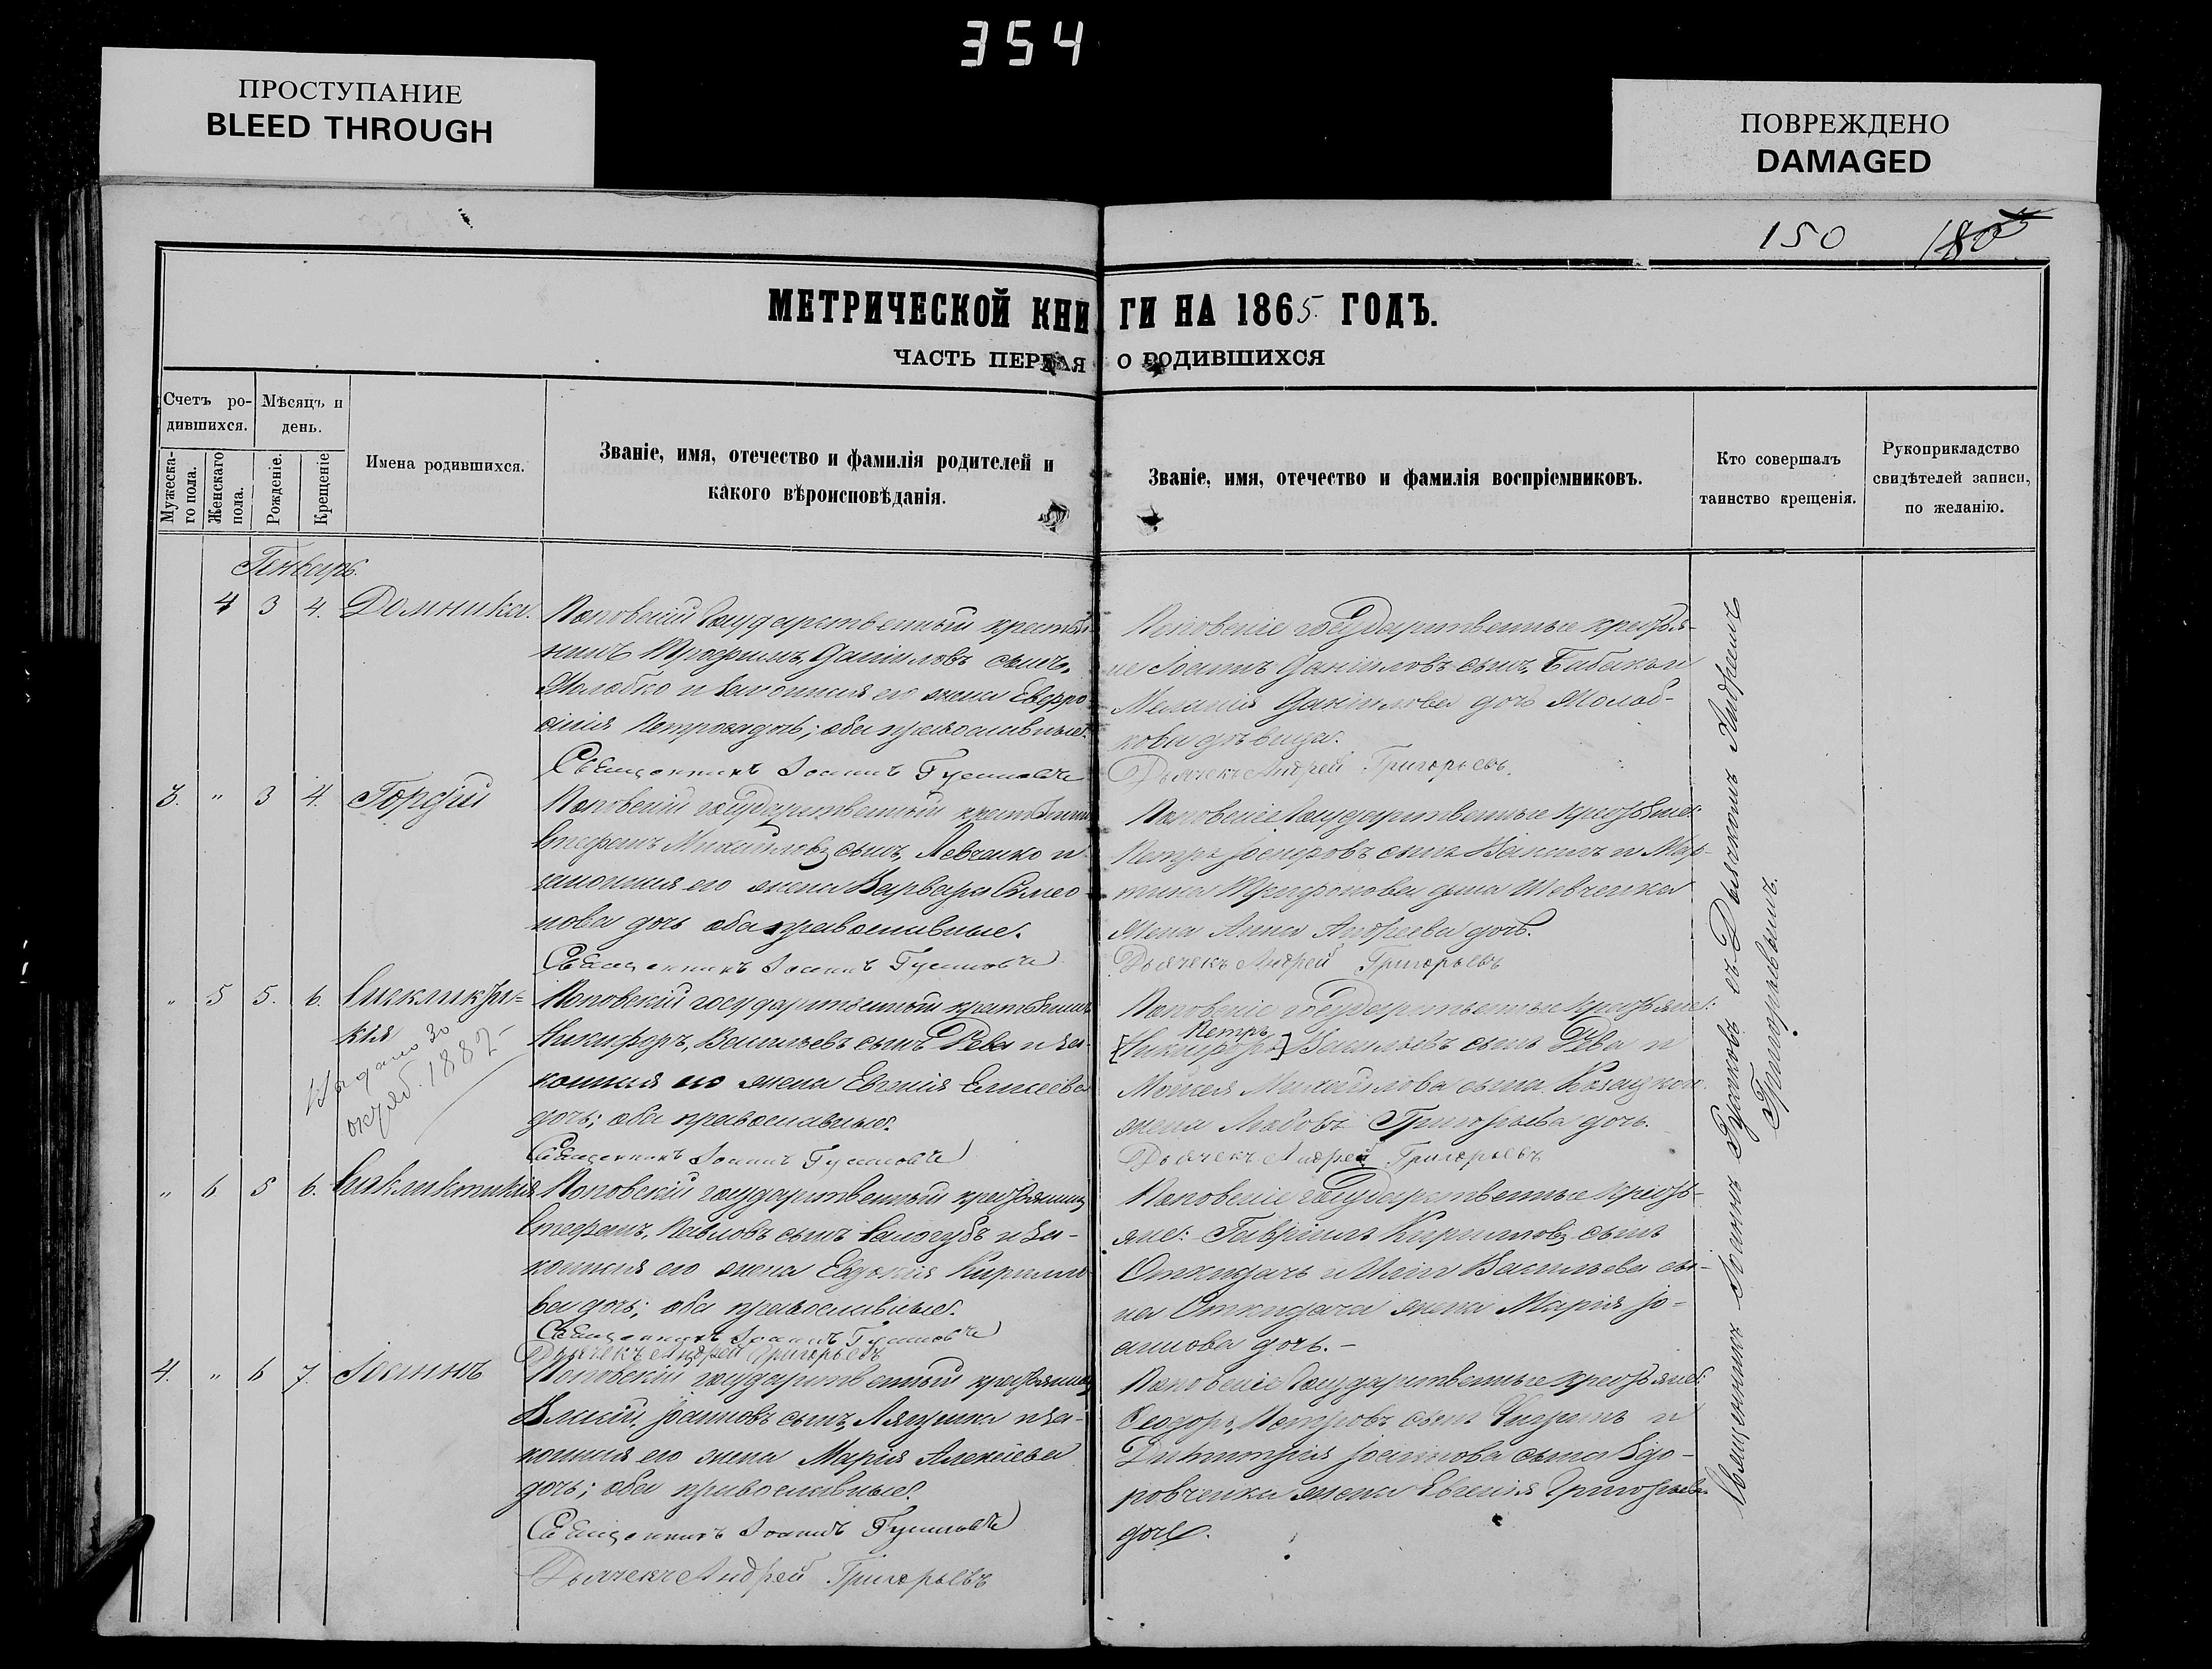 354
ПРОСТУПАНИЕ
BLEED THROUGH
ПОВРЕЖДЕНО
DAMAGED
150
МЕТРИЧЕСКОЙ КНИГИ НА 1865. ГОДЪ.
ЧАСТЬ ПЕРВАЯ О РОДИВШИХСЯ
Счетъ ро-
дившихся.
Мѣсяцъ и
день.
Мужеска-
го пола.
Женскаго
пола.
Рожденіе.
Крещеніе
Имена родившихся.
Званіе, имя, отечество и фамилія родителей и
какого вѣроисповѣданія.
Званіе, имя, отечество и фамилія воспріемниковъ.
Кто совершалъ
таинство крещенія.
Рукоприкладство
свидѣтелей записи,
по желанію.
Генварь.
4 3 4. Домника.
Поповскій Государственный крестья-
нинъ Трофимъ Даніиловъ сынъ,
Молобко и законная его жена Евфро
синія Петрова дочь; оба православные.
Священникъ Іоаннъ
Поповскіе государственные крестья-
не Іоаннъ Даніиловъ сынъ, Бабакъ и
Меланія Даніилова дочь Молоб-
кова дѣвица.
Дьячекъ Андрей Григорьевъ.
3. " 3 4. Гордій
Поповскій государственный крестьянин
Стефанъ Михайловъ сынъ, Левченко и
законная его жена Варвара Симео
нова дочь оба православные.
Священникъ Іоаннъ
Поповскіе Государственные крестьяне:
Петръ Іосифовъ сынъ и Мар-
тина Трифонова сына Шевченка
жена Анна Андреева дочь.
Дьячекъ Андрей Григорьевъ
" 5 5. 6. Синкликти=
кія
Выдано 30
октяб. 1882
Поповскій государственный крестьянинъ
Никифоръ, Васильевъ сынъ Рева и за-
конная его жена Евгенія Елисеева
дочь; оба православные.
Священникъ Іоаннъ
Поповскіе государственные крестьяне:
Петръ
[Никифоръ] Васильевъ сынъ Рева и
Моисея Михайлова сына
жена Любовь Григорьева дочь.
Дьячекъ Андрей Григорьевъ
" 6 5 6. Синкликтикія
Поповскій государственный крестьянинъ
Стефанъ, Павловъ сынъ Самогубъ и за-
конная его жена Евдокія Кирилло
ва дочь; оба православные.
Священникъ Іоаннъ
Дьячекъ Андрей Григорьевъ
Поповскіе государственные кресть-
яне: Гавріилъ Кирилловъ сынъ
Откидачъ и Иліи Васильева сы-
на Откидача жена Марія Іо-
аннова дочь. –
4. " 6 7. Іоаннъ
Поповскій государственный крестьянинъ
Іоанновъ сынъ, Ляпушка и за-
конная его жена Марія Алексіева
дочь; оба православные.
Священникъ Іоаннъ
Дьячекъ Андрей Григорьевъ
Поповскіе Государственные крестьяне:
Феодоръ, Петровъ сынъ и
Димитрія Іоаннова сына Здо-
ровченка жена Евгенія Григорьева
дочь.
Священникъ Іоаннъ съ Дьячкомъ Андреемъ
Григорьевымъ.